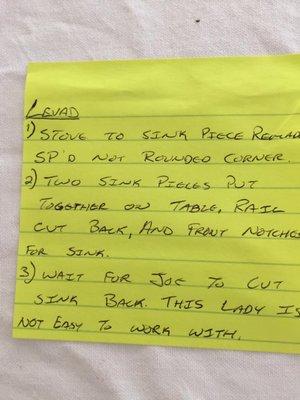 LEVAD
1) STOVE TO SINK PIECE
SP'D NOT ROUNDED CORNER.
2) TWO SINK PIECES PUT
TOGETHER ON TABLE, RAIL
CUT BACK, AND FRONT NOTCHE
FOR SINK.
3) WAIT FOR JOE TO CUT
SINK BACK. THIS LADY IS
NOT EASY TO WORK WITH.